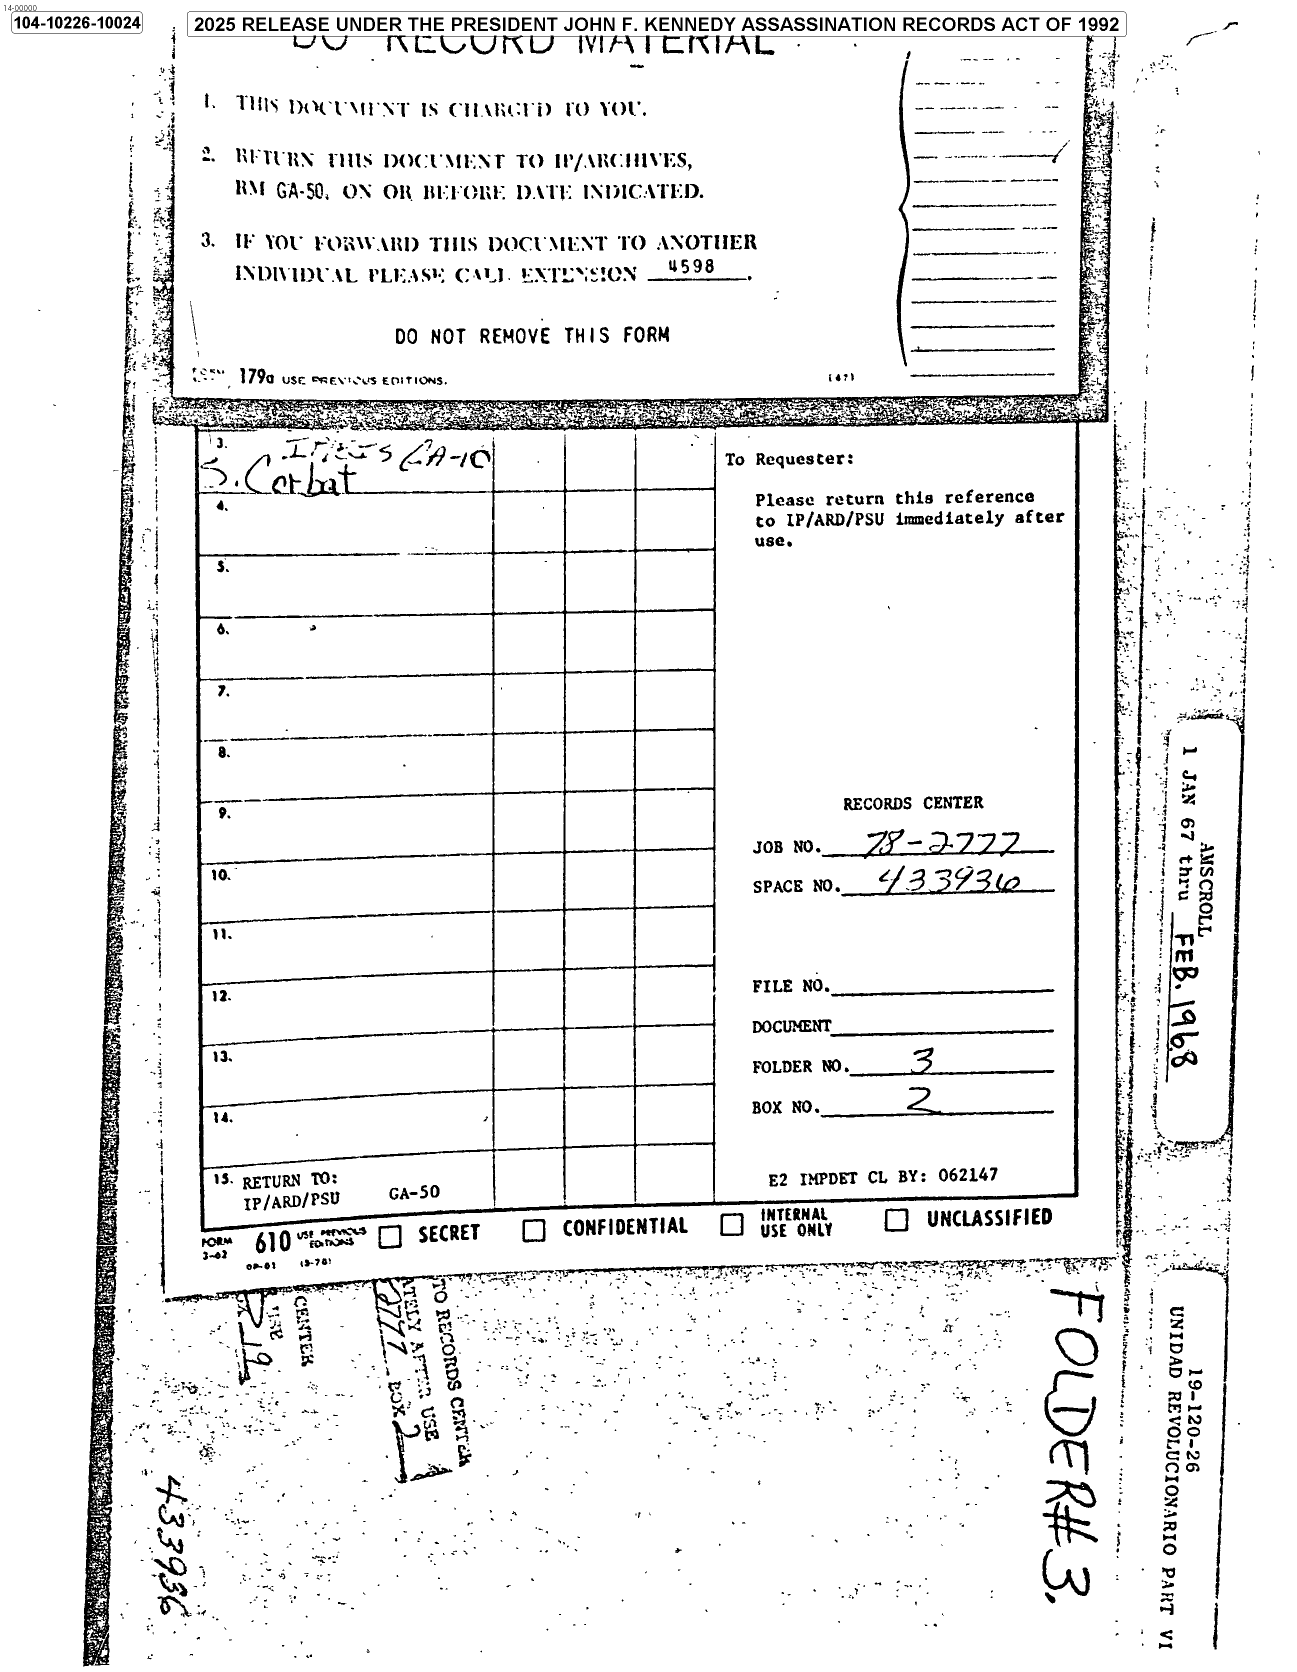 14-00000
104-10226-10024
2025 RELEASE UNDER THE PRESIDENT JOHN F. KENNEDY ASSASSINATION RECORDS ACT OF 1992
RECORD MATERIAL
1. THIS DOCUMENT IS CHARGED TO YOU.
2. RETURN THIS DOCUMENT TO IP/ARCHIVES,
RM GA-50, ON OR BEFORE DATE INDICATED.
3. IF YOU FORWARD THIS DOCUMENT TO ANOTHER
INDIVIDUAL PLEASE CALL EXTENSION 4598.
DO NOT REMOVE THIS FORM
FORM 179a USE PREVIOUS EDITIONS. (47)
3. GA-10
S. Corbat
4.
5.
6.
7.
8.
9.
10.
11.
12.
13.
14.
15. RETURN TO:
IP/ARD/PSU GA-50
To Requester:
Please return this reference
to IP/ARD/PSU immediately after
use.
RECORDS CENTER
JOB NO. 78-2777
SPACE NO. 433936
FILE NO.
DOCUMENT
FOLDER NO. 3
BOX NO. 2
E2 IMPDET CL BY: 062147
FORM 3-62 610 USE PREVIOUS EDITIONS
OP-01 (3-78)
SECRET CONFIDENTIAL INTERNAL USE ONLY UNCLASSIFIED
TO RECORDS CENTER
ATELY AFTER USE
2777 BOX 2
CENTER
USE
R-19
433936
FOLDER# 3.
AMSCROLL
1 JAN 67 thru FEB. 1968
19-120-26
UNIDAD REVOLUCIONARIO PART VI